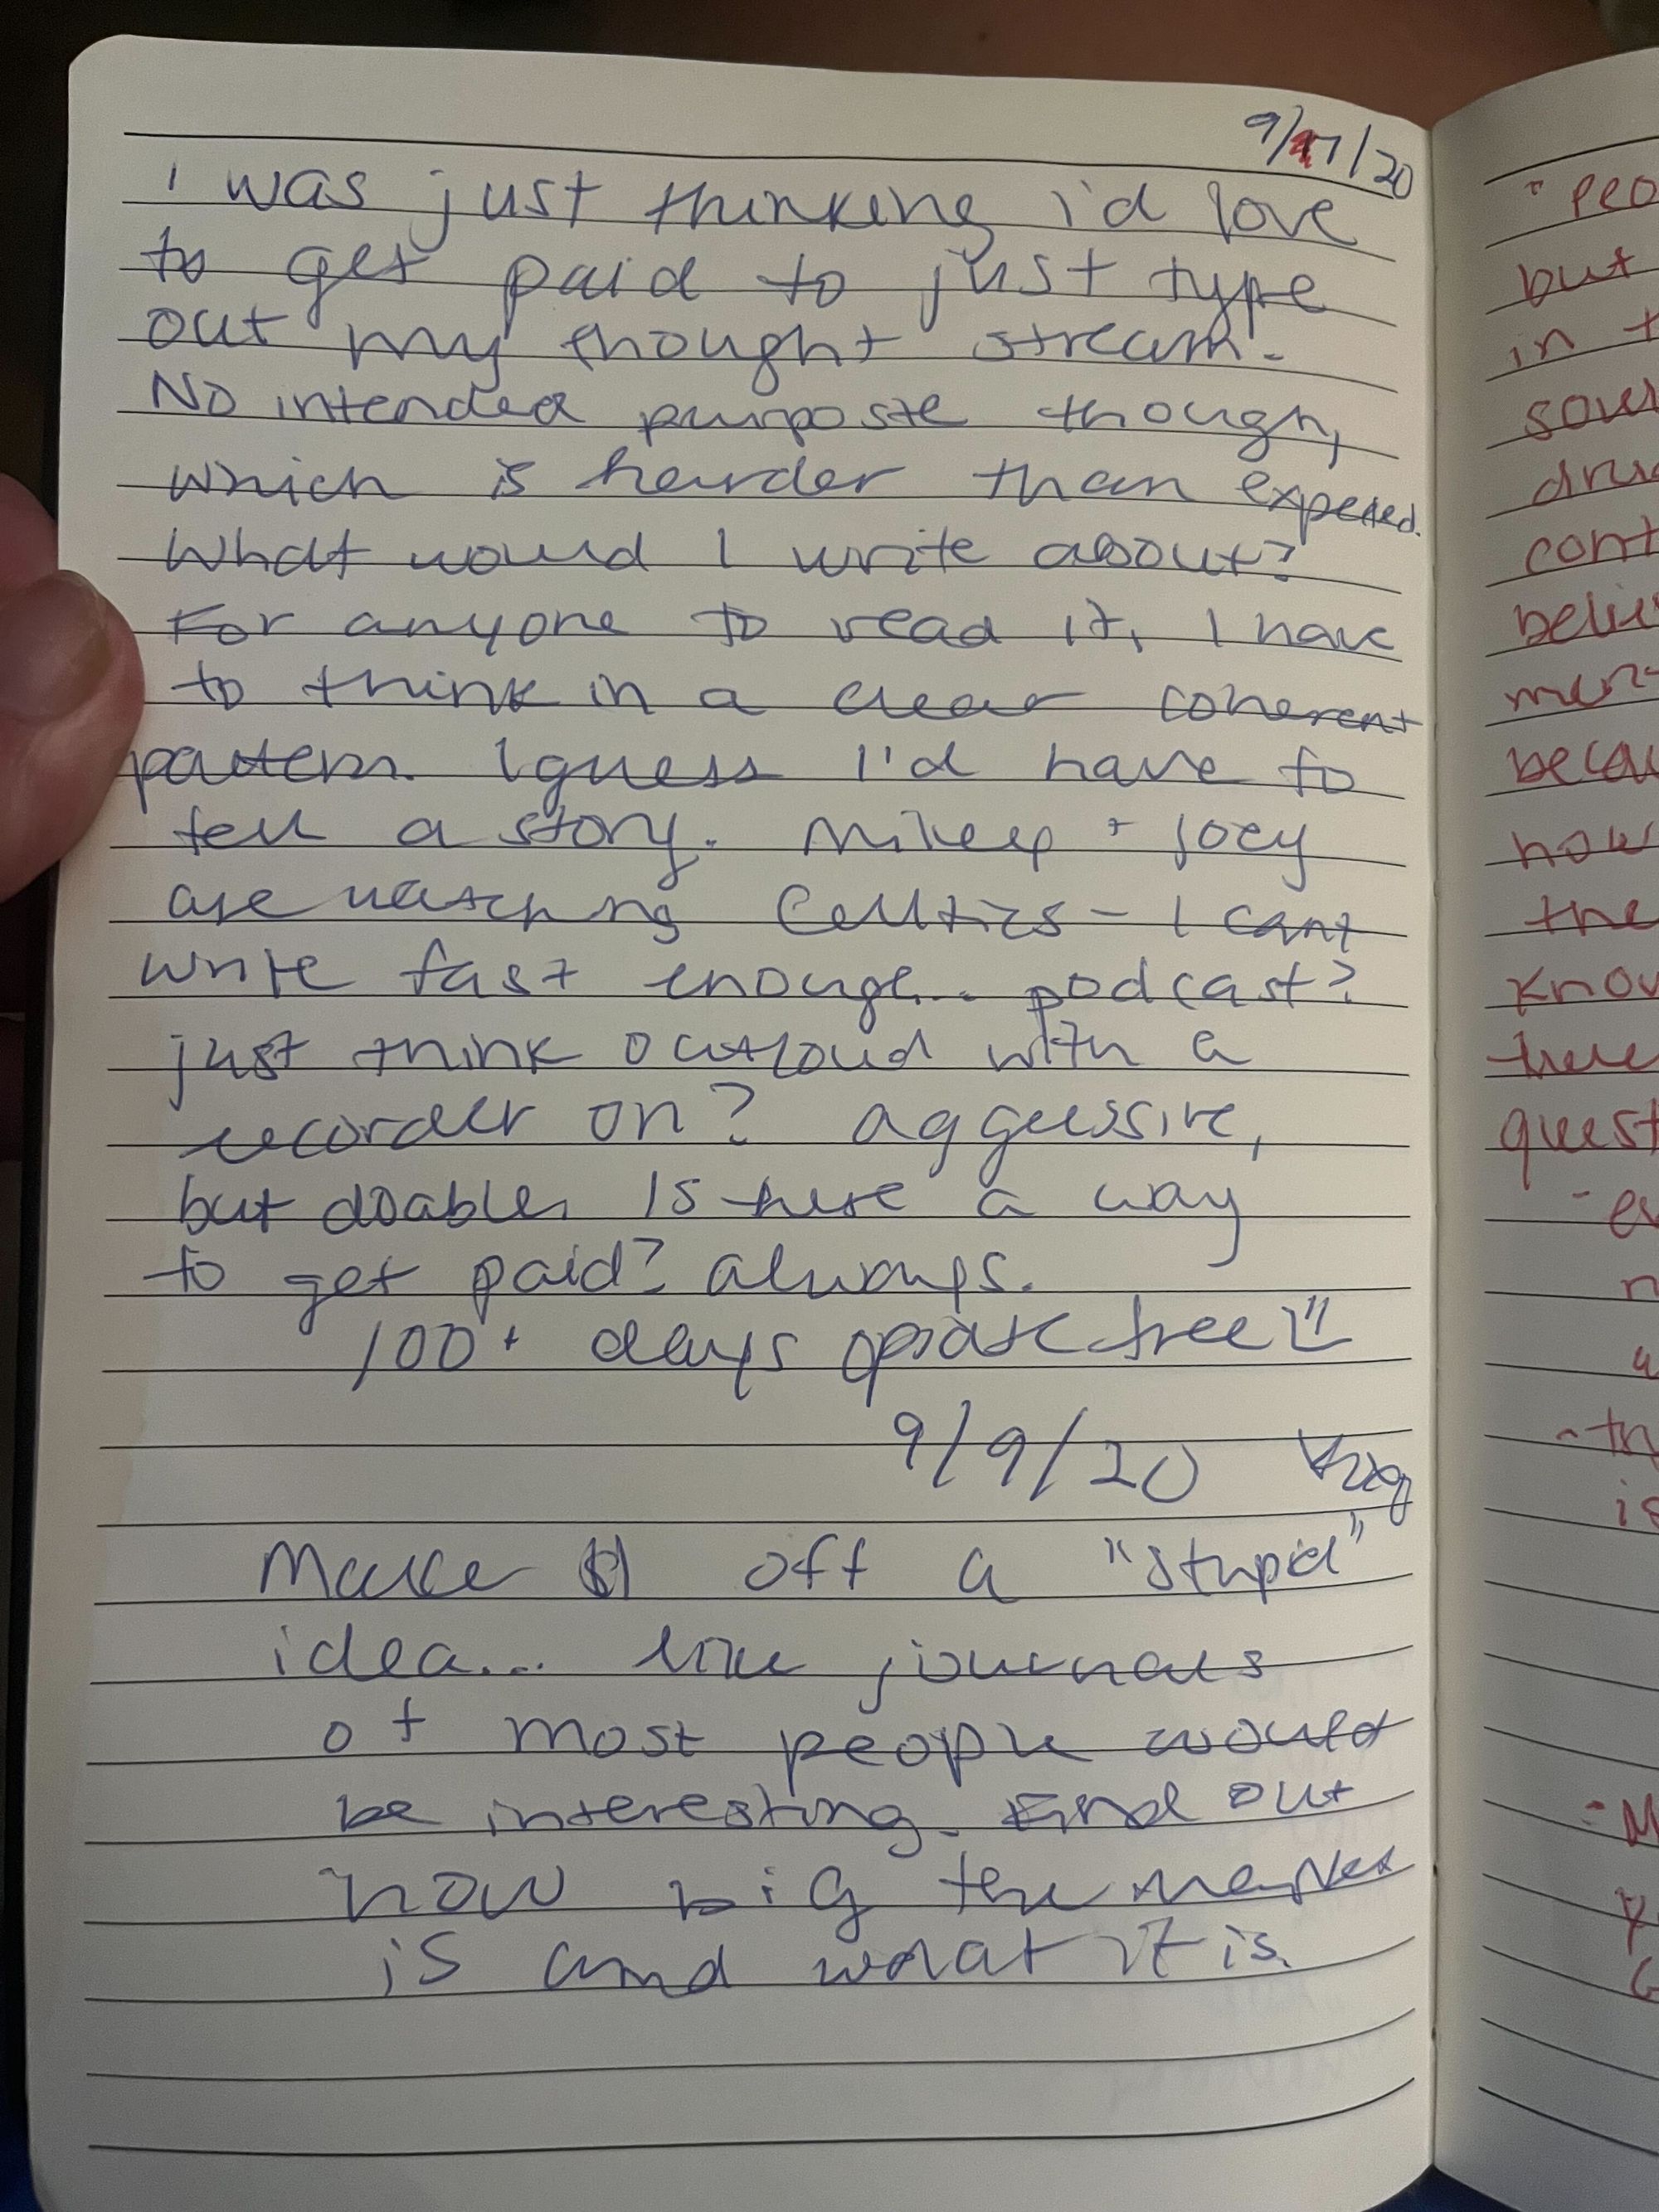 9/7/20
I was just thinking i'd love
to get paid to just type
out my thought stream.
No intended purpose though,
which is harder than expected.
What would I write about?
For anyone to read it, I have
to think in a clear coherent
pattern. I guess I'd have to
tell a story. Mikey + Joey
are watching Celltics - I cant
write fast enough... podcast?
just think outloud with a
recorder on? aggressive,
but doable. Is there a way
to get paid? always.
100+ days opiate free
9/9/20
Make $ off a "stupid"
idea... like journals
of most people would
be interesting. Find out
how big the market
is and what it is.
"peo
but
in t
sour
dru
cont
belie
men
becau
how
the
know
there
quest
- ev
n
u
- th
is
- M
y
G